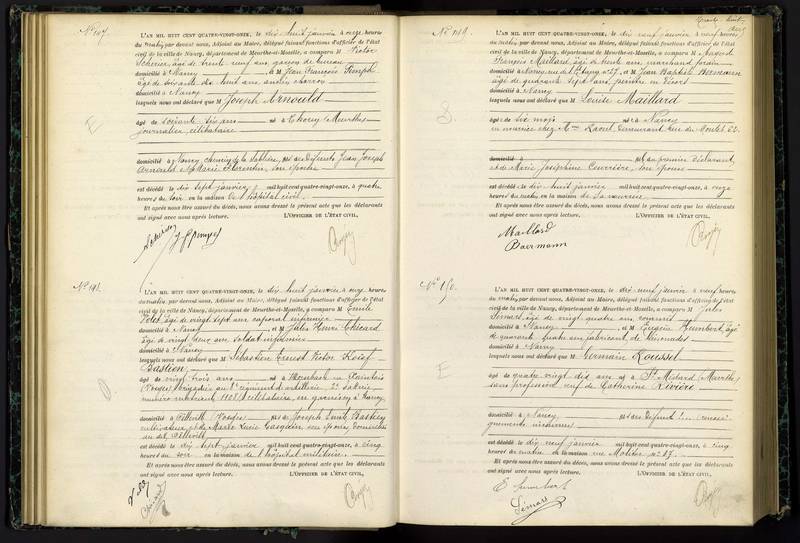 L'AN MIL HUIT CENT QUATRE-VINGT-ONZE, le dix huit janvier à onze heures
du matin, par devant nous, Adjoint au Maire, délégué faisant fonctions d'officier de l'état
civil de la ville de Nancy, département de Meurthe-et-Moselle, a comparu M Victor
âgé de trente neuf ans, garçon de bureau
domicilié à Nancy et M Jean François
âgé de soixante dix huit ans ancien charron
domicilié à Nancy
lesquels nous ont déclaré que M Joseph Arnould
âgé de soixante six ans né à Thorey (Meurthe)
journalier, célibataire
domicilié à Nancy, chemin de la fils de défunts Jean Joseph
Arnould et Marie Florentin, son épouse
est décédé le dix sept janvier mil huit cent quatre-vingt-onze, à quatre
heures du soir en la maison de l'hôpital civil.
Et après nous être assuré du décès, nous avons dressé le présent acte que les déclarants
ont signé avec nous après lecture. L'OFFICIER DE L'ÉTAT CIVIL,
L'AN MIL HUIT CENT QUATRE-VINGT-ONZE, le dix huit janvier à onze heures
du matin, par devant nous, Adjoint au Maire, délégué faisant fonctions d'officier de l'état
civil de la ville de Nancy, département de Meurthe-et-Moselle, a comparu M Emile
âgé de vingt sept ans caporal infirmier
domicilié à Nancy et M Jules Henri
âgé de vingt deux ans soldat infirmier
domicilié à Nancy
lesquels nous ont déclaré que M Sébastien Ernest Victor
Bastien
âgé de vingt trois ans né à
(Vosges) brigadier au régiment d'artillerie, 2e batterie
numéro matricule célibataire, en garnison à Nancy
domicilié à (Vosges) fils de Joseph Bastien
cultivateur et de Marie Lucie son épouse domiciliés
est décédé le dix sept janvier mil huit cent quatre-vingt-onze, à cinq
heures du soir en la maison de l'hôpital militaire.
Et après nous être assuré du décès, nous avons dressé le présent acte que les déclarants
ont signé avec nous après lecture. L'OFFICIER DE L'ÉTAT CIVIL,
No 149.
L'AN MIL HUIT CENT QUATRE-VINGT-ONZE, le dix neuf janvier à neuf heures
du matin, par devant nous, Adjoint au Maire, délégué faisant fonctions d'officier de l'état
civil de la ville de Nancy, département de Meurthe-et-Moselle, a comparu M
François Maillard, âgé de trente ans, marchand forain
domicilié à Nancy, rue de l' no 27, et M Jean Baptiste Baermann
âgé de quarante sept ans, peintre en décors
domicilié à Nancy
lesquels nous ont déclaré que M Louise Maillard
âgé de six mois né à Nancy
en nourrice chez Mme Raoul demeurant rue du Montet 62.
domicilié à fils du premier déclarant,
et de Marie Joséphine son épouse
est décédé le dix huit janvier mil huit cent quatre-vingt-onze, à onze
heures du matin en la maison de sa nourrice
Et après nous être assuré du décès, nous avons dressé le présent acte que les déclarants
ont signé avec nous après lecture. L'OFFICIER DE L'ÉTAT CIVIL,
Maillard
Baermann
No 150.
L'AN MIL HUIT CENT QUATRE-VINGT-ONZE, le dix neuf janvier à neuf heures
du matin, par devant nous, Adjoint au Maire, délégué faisant fonctions d'officier de l'état
civil de la ville de Nancy, département de Meurthe-et-Moselle, a comparu M Jules
âgé de vingt quatre ans
domicilié à Nancy, et M Eugène Humbert, âgé
de quarante quatre ans fabricant de limonades
domicilié à Nancy
lesquels nous ont déclaré que M Germain Roussel
âgé de quatre vingt dix ans né à St Médard (Meurthe)
sans profession veuf de Catherine Rivière
domicilié à Nancy fils de défunts
est décédé le dix neuf janvier mil huit cent quatre-vingt-onze, à cinq
heures du matin en la maison rue Molitor no 27.
Et après nous être assuré du décès, nous avons dressé le présent acte que les déclarants
ont signé avec nous après lecture. L'OFFICIER DE L'ÉTAT CIVIL,
E Humbert